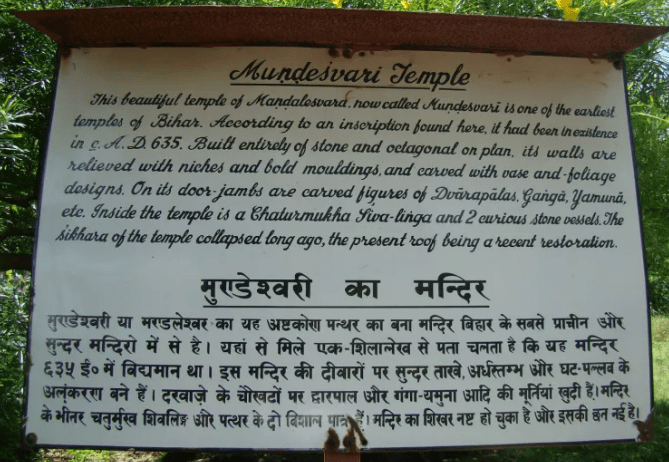 Muṇḍeśvari Temple
This beautiful temple of Maṇḍaleśvara, now called Muṇḍeśvarī is one of the earliest
temples of Bihar. According to an inscription found here, it had been in existence
in c. A. D. 635. Built entirely of stone and octagonal on plan, its walls are
relieved with niches and bold mouldings, and carved with vase and-foliage
designs. On its door-jambs are carved figures of Dvārapālas, Gaṅgā, Yamunā,
etc. Inside the temple is a Chaturmukha Śiva-liṅga and 2 curious stone vessels. The
śikhara of the temple collapsed long ago, the present roof being a recent restoration.
मुण्डेश्वरी का मन्दिर
मुण्डेश्वरी या मण्डलेश्वर का यह अष्टकोण पत्थर का बना मन्दिर बिहार के सबसे प्राचीन और
सुन्दर मन्दिरो में से है। यहां से मिले एक-शिलालेख से पता चलता है कि यह मन्दिर
६३५ ई० में विद्यमान था। इस मन्दिर की दीवारों पर सुन्दर ताखे, अर्धस्तम्भ और घट-पल्लव के
अलंकरण बने हैं। दरवाज़े के चौखटों पर द्वारपाल और गंगा-यमुना आदि की मूर्तियां खुदी हैं। मन्दिर
के भीतर चतुर्मुख शिवलिङ्ग और पत्थर के दो विशाल पात्र हैं। मन्दिर का शिखर नष्ट हो चुका है और इसकी छत नई है।